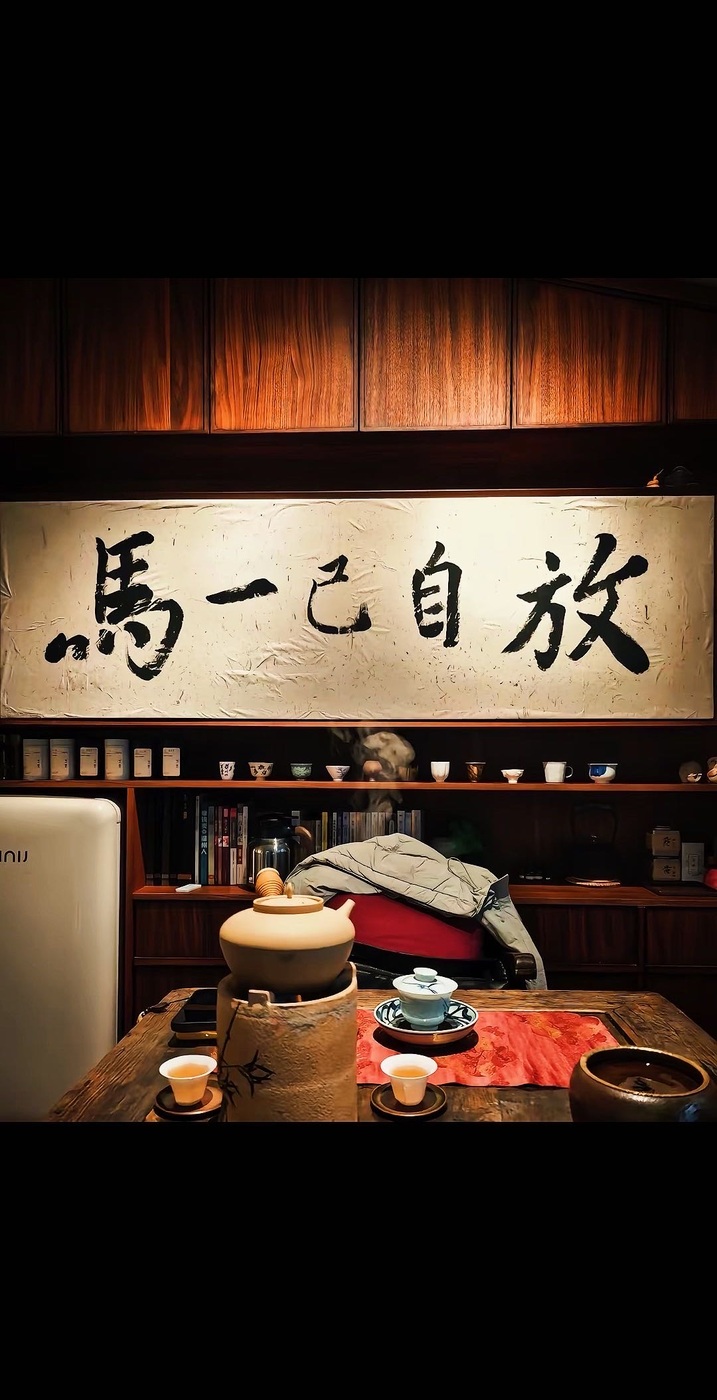 放自己一馬